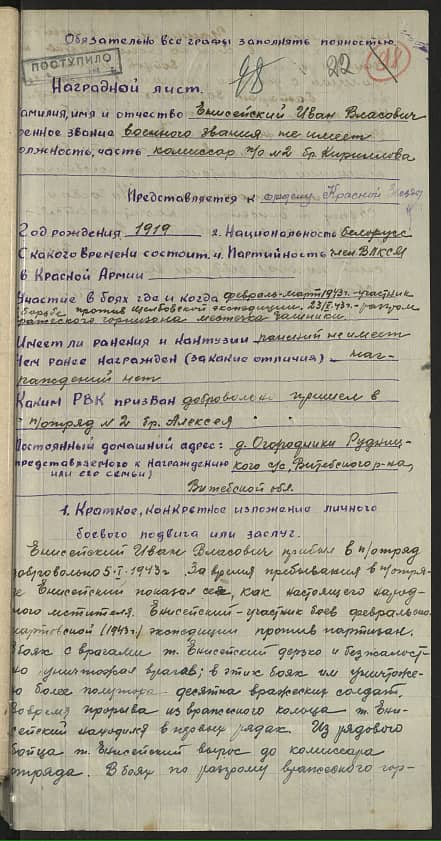 Обязательно все графы заполнять полностью.
ПОСТУПИЛО
98 22 98
Наградной лист.
амилия, имя и отчество Енисейский Иван Власович
оенное звание военного звания не имеет
олжность, часть комиссар п/о №2 бр. Кириллова
Представляется к ордену Красной Звезды
Год рождения 1919 2. Национальность белорус
С какого времени состоит 4. Партийность член ВЛКСМ
в Красной Армии
Участие в боях где и когда февраль-март 1943г.-участник
борьбе против экспедиции. разгром
гарнизона местечка
Имеет ли ранения и контузии ранений не имеет
Чем ранее награжден (за какие отличия) наг-
раждений нет
Каким РВК призван добровольно пришел в
п/отряд №2 бр. Алексея
Постоянный домашний адрес: д. Огородники Рудниц-
представляемого к награждению кого с/с, Витебского р-на,
или его семьи)
Витебской обл.
1. Краткое, конкретное изложение личного
боевого подвига или заслуг.
Енисейский Иван Власович прибыл в п/отряд
добровольно 5-I-1943г. За время пребывания в п/отря-
де Енисейский показал себя, как настоящего народ-
ного мстителя. Енисейский-участник боев февральско-
мартовской (1943г.) экспедиции против партизан.
В боях с врагами т. Енисейский дерзко и безжалост-
но уничтожал врагов; в этих боях им уничтоже-
но более полутора десятка вражеских солдат.
Во время прорыва из вражеского кольца т. Ени-
сейский находился в первых рядах. Из рядового
бойца т. Енисейский вырос до комиссара
отряда. В боях по разгрому вражеского гар-